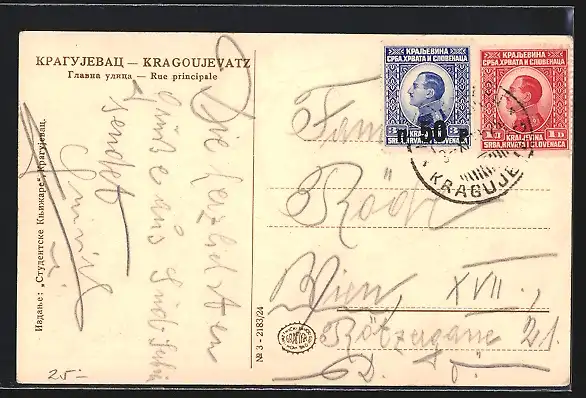 КРАГУЈЕВАЦ — KRAGOUJEVATZ
Главна улица — Rue principale
Die herzlichsten
Grüsse aus Süd-Serbien
sendet
Издање: „Студентске Књижаре“ Крагујевац.
№ 3 - 2183/24
25-
КРАЉЕВИНА
СРБА, ХРВАТА И СЛОВЕНАЦА
3 Д 3 Д
KRALJEVINA
SRBA, HRVATA I SLOVENACA
50
КРАЉЕВИНА
СРБА, ХРВАТА И СЛОВЕНАЦА
1 Д 1 D
KRALJEVINA
SRBA, HRVATA I SLOVENACA
KRAGUJE
Fam
Wien XVII.,
Rötzergasse 21.
D. Ö.